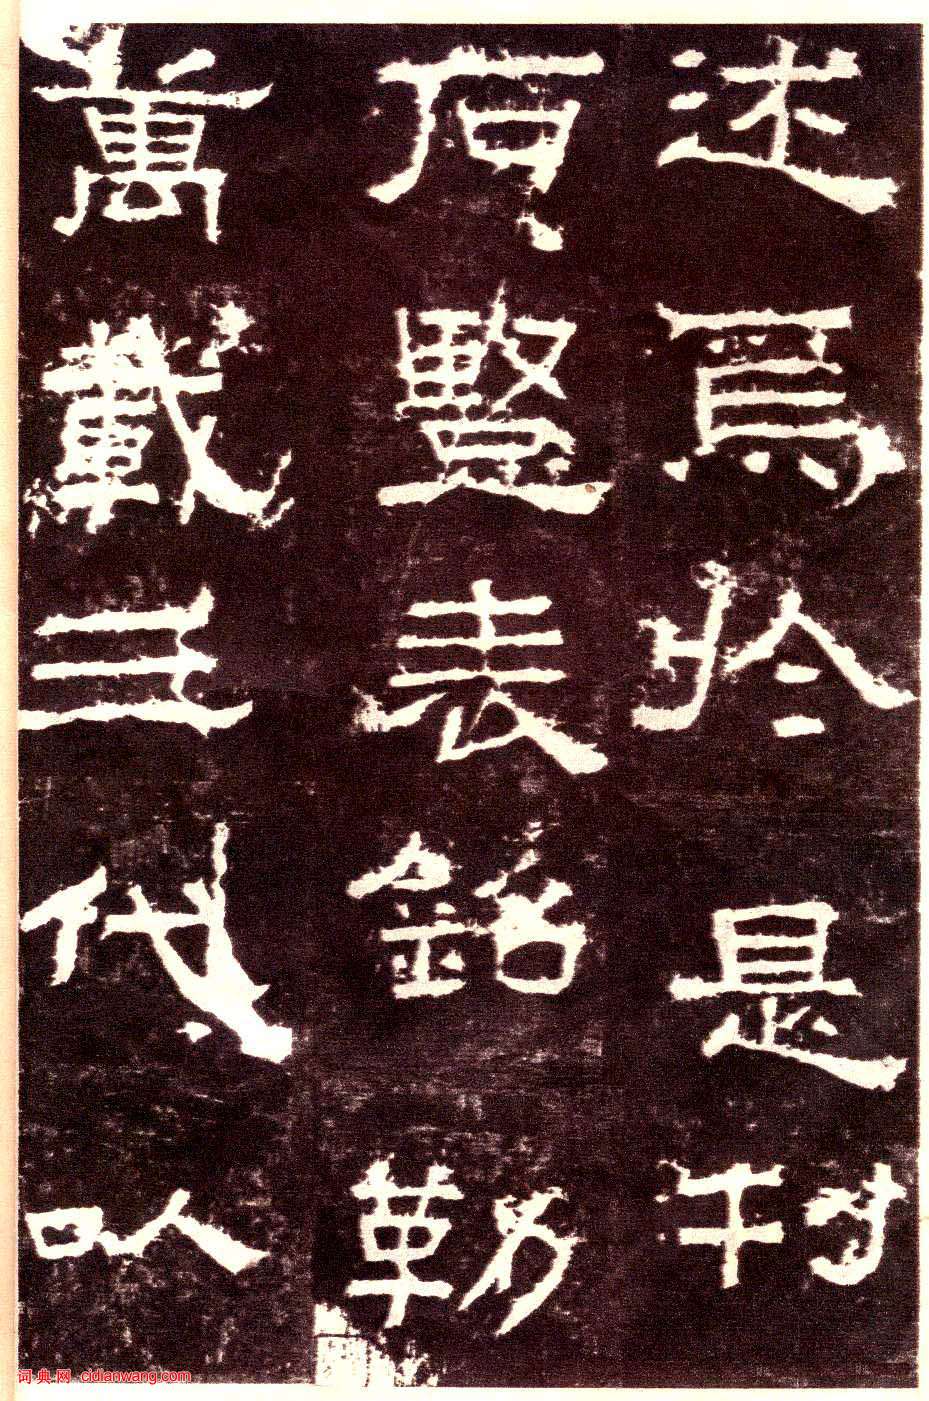 述焉於是刊
石豎表銘勒
萬載三代以
词典网 cidianwang.com